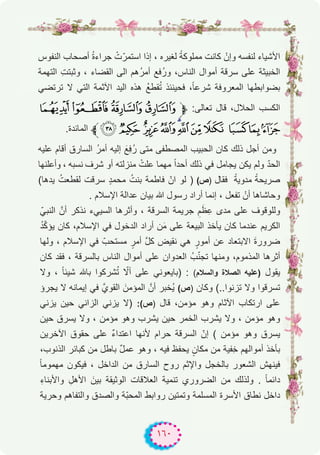 الأشياء لنفسه وإنْ كانت مملوكةً لغيره ، إذا استمرّتْ جراءةُ أصحاب النفوس
الخبيثة على سرقة أموال الناس، ورُفع أمرُهم الى القضاء ، وثبتتِ التهمة
بضوابطها المعروفة شرعاً، فحينئذٍ تُقطعُ هذه اليد الآثمة التي لا ترتضي
الكسب الحلال، قال تعالى: ﴿ وَالسَّارِقُ وَالسَّارِقَةُ فَاقْطَعُوا أَيْدِيَهُمَا
جَزَاءً بِمَا كَسَبَا نَكَالًا مِّنَ اللَّهِ وَاللَّهُ عَزِيزٌ حَكِيمٌ ﴿٣٨﴾ ﴾ المائدة.
ومن أجل ذلك كان الحبيب المصطفى متى رُفِعَ إليه أمرُ السارق أقام عليه
الحدّ ولم يكن يجامل في ذلك أحداً مهما علتْ منزلته أو شرف نسبه ، وأعلنها
صريحةً مدويةً فقال (ص) ( لو انّ فاطمة بنتُ محمدٍ سرقت لقطعتُ يدها)
وحاشاها أنْ تفعل ، إنما أراد رسول الله بيان عدالة الإسلام .
وللوقوف على مدى عِظَمِ جريمة السرقة ، وأثرها السيىء نذكر أنّ النبيّ
الكريم عندما كان يأخذ البيعة على مَن أراد الدخول في الإسلام، كان يؤكّدُ
ضرورة الابتعاد عن أمورٍ هي نقيض كلّ أمرٍ مستحبّ في الإسلام ، ولها
أثرها المذموم، ومنها تجنّبُ العدوان على أموال الناس بالسرقة ، فقد كان
يقول (عليه الصلاة والسلام) : (بايعوني على ألّا تُشركوا بالله شيئاً ، ولا
تسرقوا ولا تزنوا..) وكان (ص) يُخبر أنّ المؤمنَ القويّ في إيمانه لا يجرؤ
على ارتكاب الآثام وهو مؤمن، قال (ص): (لا يزني الزاني حين يزني
وهو مؤمن ، ولا يشرب الخمر حين يشرب وهو مؤمن ، ولا يسرق حين
يسرق وهو مؤمن ) إنّ السرقة حرام لأنها اعتداءٌ على حقوق الآخرين
بأخذ أموالهم خِفية من مكانٍ يحفظ فيه ، وهو عملٌ باطل من كبائر الذنوب،
فينهش الشعور بالخجل والإثم روح السارق من الداخل ، فيكون مهموماً
دائماً . ولذلك من الضروري تنمية العلاقات الوثيقة بينَ الأهلِ والأبناءِ
داخل نطاق الأسرة المسلمة وتمتين روابط المحبّة والصدق والتفاهم وحرية
١٦٠